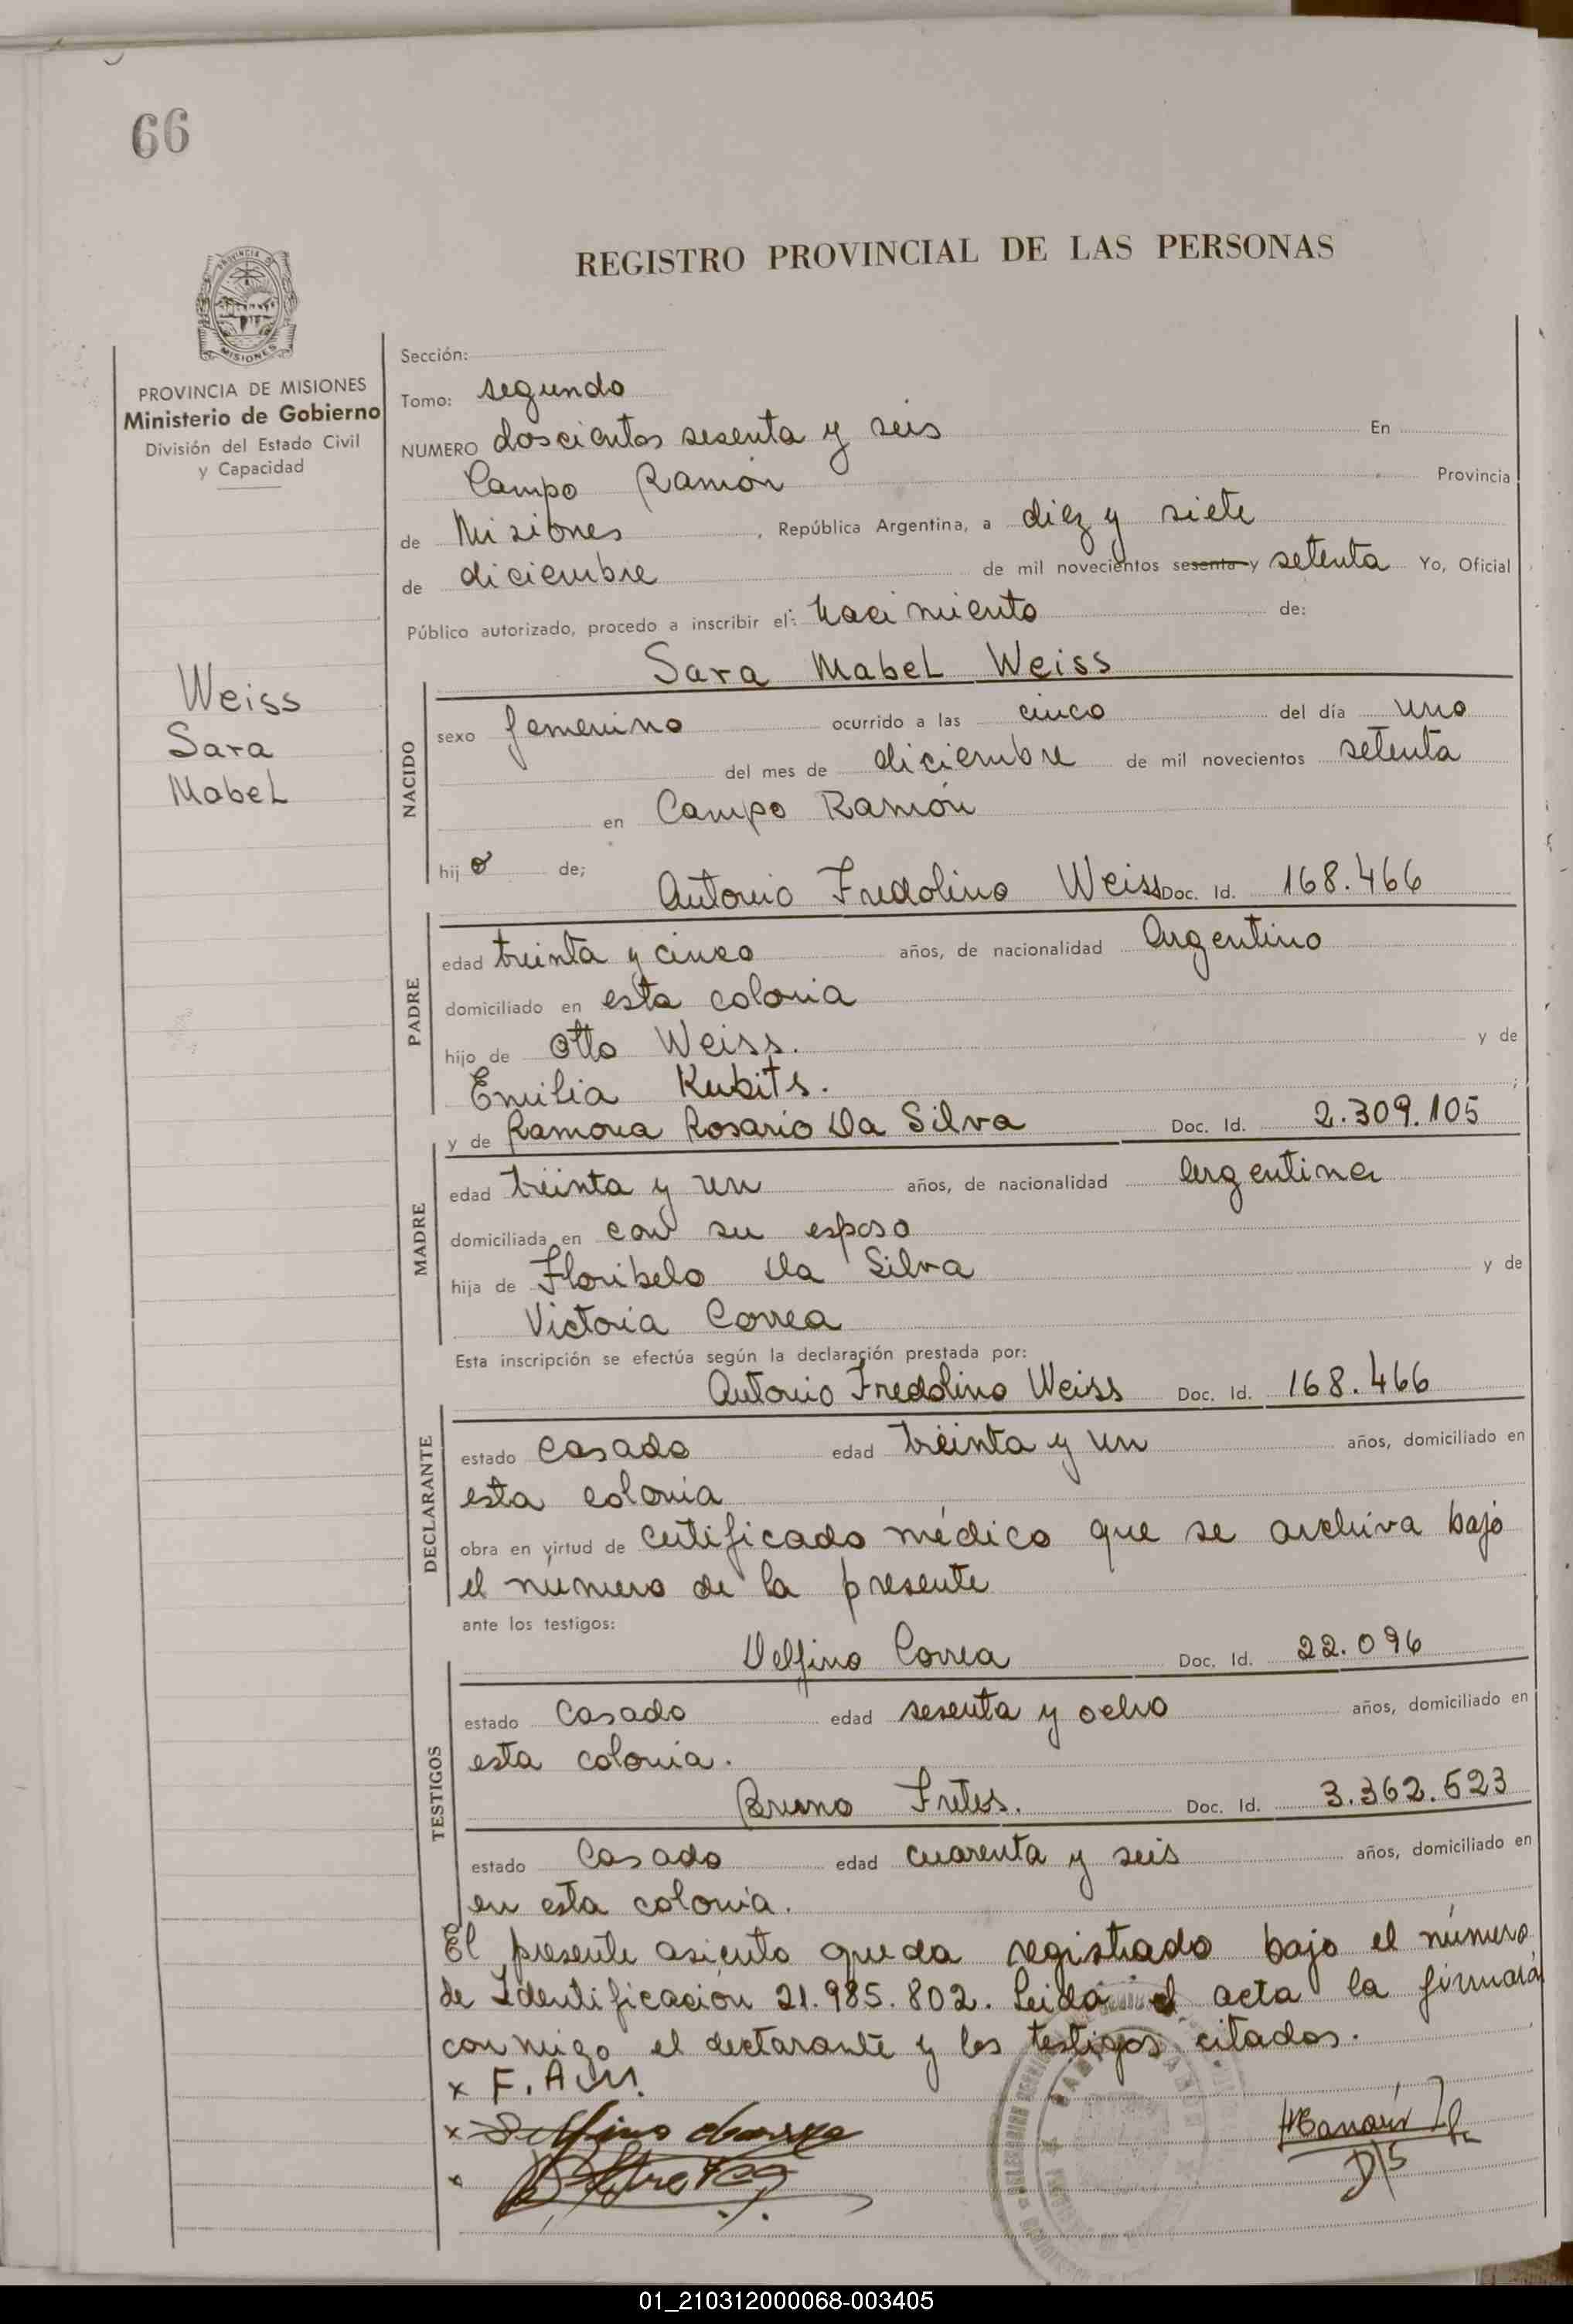 66
REGISTRO PROVINCIAL DE LAS PERSONAS
PROVINCIA DE MISIONES
Ministerio de Gobierno
División del Estado Civil
y Capacidad
Weiss
Sara
Mabel
Sección:
Tomo: segundo
NUMERO doscientos sesenta y seis En
Campo Ramón Provincia
de Misiones, República Argentina, a diez y siete
de diciembre de mil novecientos sesenta y setenta Yo, Oficial
Público autorizado, procedo a inscribir el: Nacimiento de:
Sara Mabel Weiss
NACIDO
sexo femenino ocurrido a las cinco del día uno
del mes de diciembre de mil novecientos setenta
en Campo Ramón
hij a de;
Antonio Fredolino Weiss Doc. Id. 168.466
PADRE
edad treinta y cinco años, de nacionalidad Argentino
domiciliado en esta colonia
hijo de Otto Weiss. y de
Emilia Kubits. ;
y de Ramona Rosario Da Silva Doc. Id. 2.309.105
MADRE
edad treinta y un años, de nacionalidad Argentina
domiciliada en con su esposo
hija de Floribelo Da Silva y de
Victoria Correa
Esta inscripción se efectúa según la declaración prestada por:
Antonio Fredolino Weiss Doc. Id. 168.466
DECLARANTE
estado Casado edad treinta y un años, domiciliado en
esta colonia
obra en virtud de certificado médico que se archiva bajo
el número de la presente
ante los testigos:
Delfino Correa Doc. Id. 22.096
TESTIGOS
estado Casado edad sesenta y ocho años, domiciliado en
esta colonia.
Bruno Fretes. Doc. Id. 3.362.523
estado Casado edad cuarenta y seis años, domiciliado en
en esta colonia.
El presente asiento queda registrado bajo el número
de Identificación 21.985.802. Leida el acta la firmará
conmigo el declarante y los testigos citados.
x F. A. W.
01_210312000068-003405